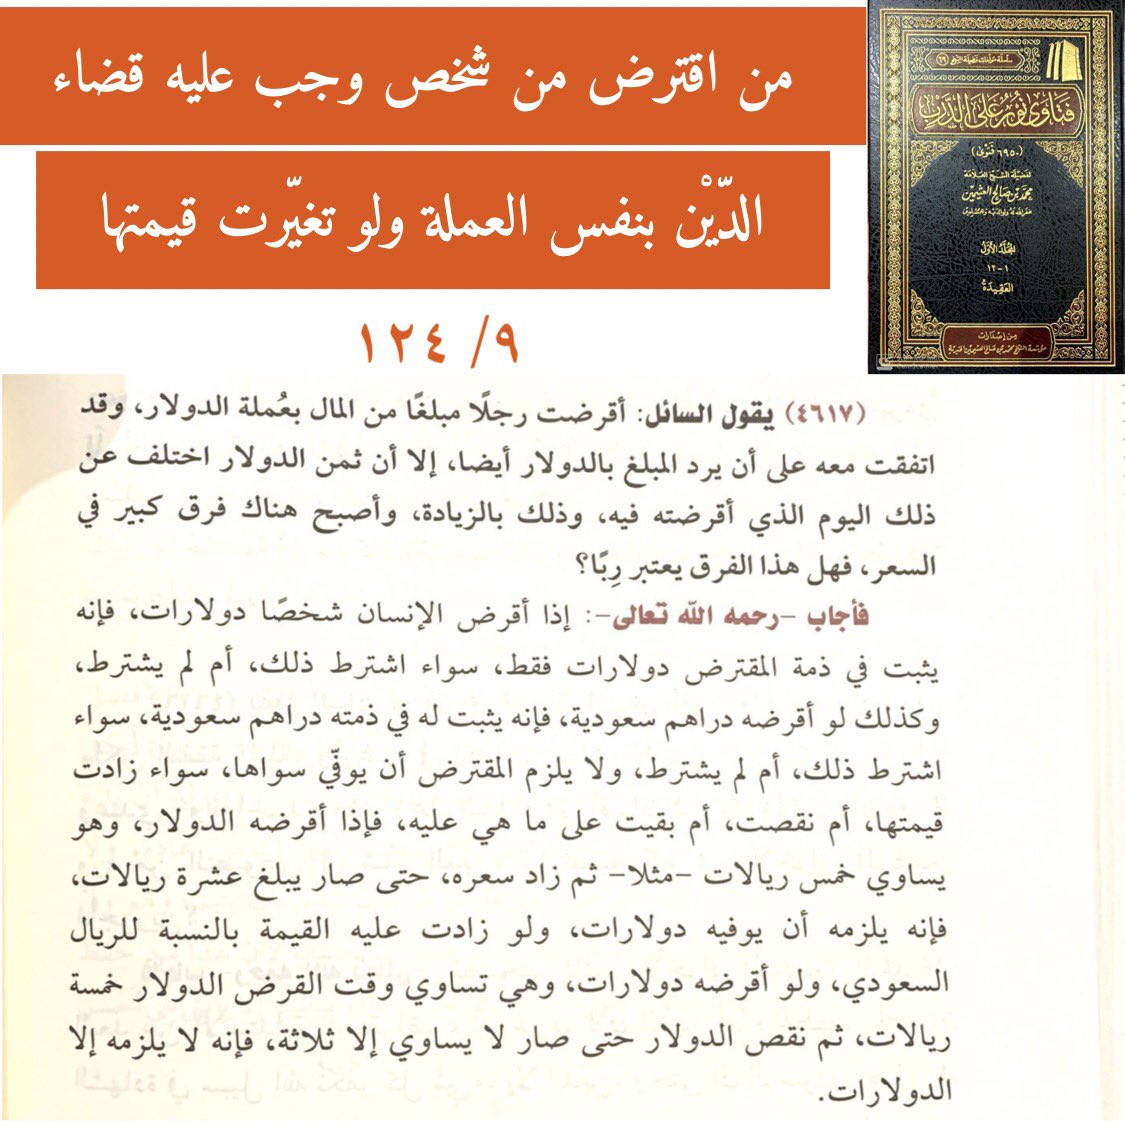 من اقترض من شخص وجب عليه قضاء
الدّيْن بنفس العملة ولو تغيّرت قيمتها
٩/ ١٢٤
فتاوى نور على الدرب
(٦٩٥٠ فتوى)
لفضيلة الشيخ العلامة
محمد بن صالح العثيمين
غفر الله له ولوالديه وللمسلمين
المجلد الأول
١-١٢
العقيدة
من إصدارات
مؤسسة الشيخ محمد بن صالح العثيمين الخيرية
(٤٦١٧) يقول السائل: أقرضت رجلًا مبلغًا من المال بعُملة الدولار، وقد
اتفقت معه على أن يرد المبلغ بالدولار أيضا، إلا أن ثمن الدولار اختلف عن
ذلك اليوم الذي أقرضته فيه، وذلك بالزيادة، وأصبح هناك فرق كبير في
السعر، فهل هذا الفرق يعتبر رِبًا؟
فأجاب -رحمه الله تعالى-: إذا أقرض الإنسان شخصًا دولارات، فإنه
يثبت في ذمة المقترض دولارات فقط، سواء اشترط ذلك، أم لم يشترط،
وكذلك لو أقرضه دراهم سعودية، فإنه يثبت له في ذمته دراهم سعودية، سواء
اشترط ذلك، أم لم يشترط، ولا يلزم المقترض أن يوفّي سواها، سواء زادت
قيمتها، أم نقصت، أم بقيت على ما هي عليه، فإذا أقرضه الدولار، وهو
يساوي خمس ريالات -مثلا- ثم زاد سعره، حتى صار يبلغ عشرة ريالات،
فإنه يلزمه أن يوفيه دولارات، ولو زادت عليه القيمة بالنسبة للريال
السعودي، ولو أقرضه دولارات، وهي تساوي وقت القرض الدولار خمسة
ريالات، ثم نقص الدولار حتى صار لا يساوي إلا ثلاثة، فإنه لا يلزمه إلا
الدولارات.